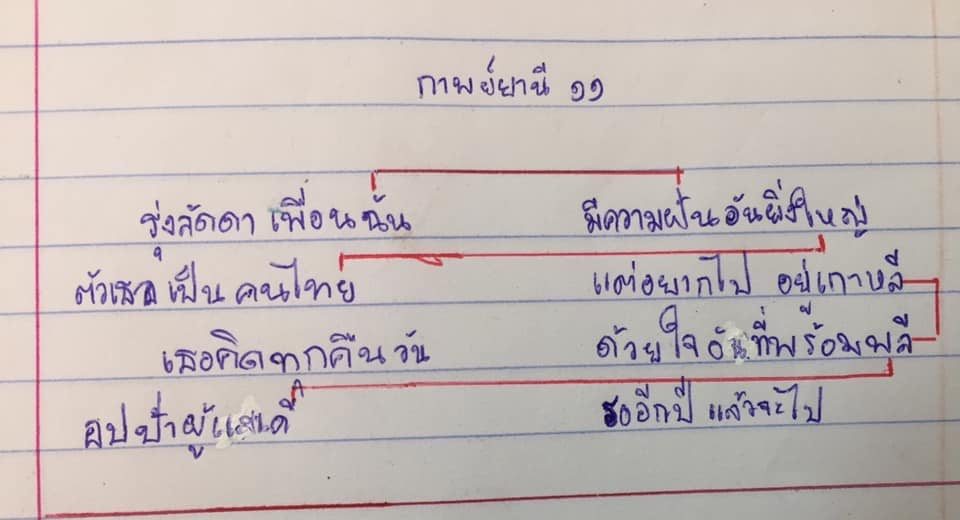 กาพย์ยานี ๑๑
รุ่งลัดดา เพื่อนฉัน มีความฝันอันยิ่งใหญ่
ตัวเธอ เป็นคนไทย แต่อยากไป อยู่เกาหลี
เธอคิดทุกคืนวัน ด้วยใจอันที่พร้อมพลี
อปป้าผู้แสนดี รออีกปี แล้วจะไป